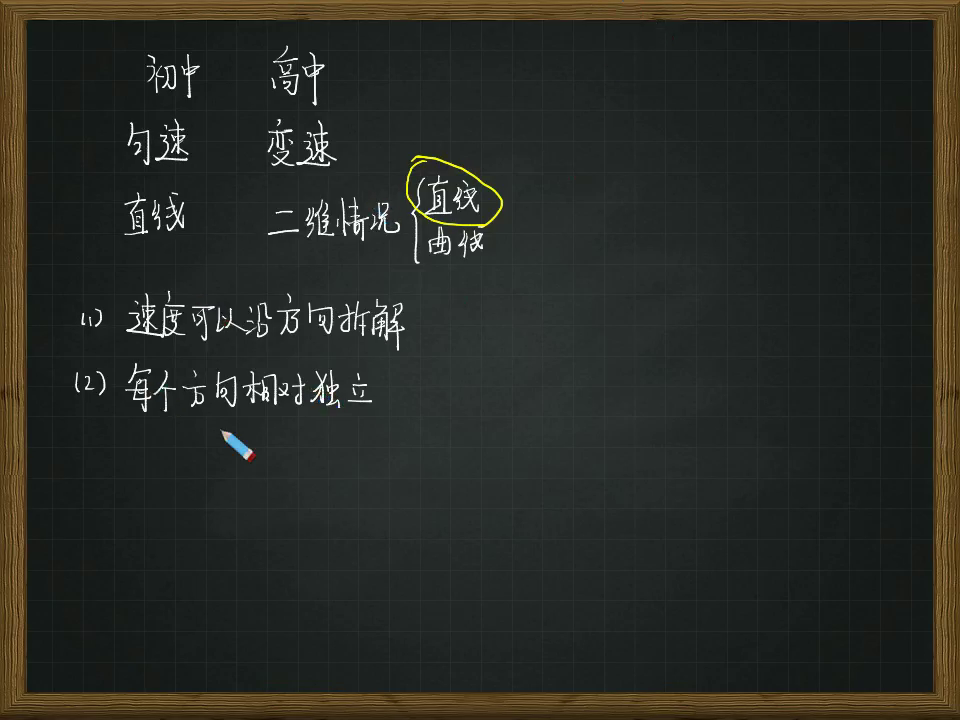 初中 高中
匀速 变速
直线 二维情况 { 直线
曲线
(1) 速度可以沿方向拆解
(2) 每个方向相对独立